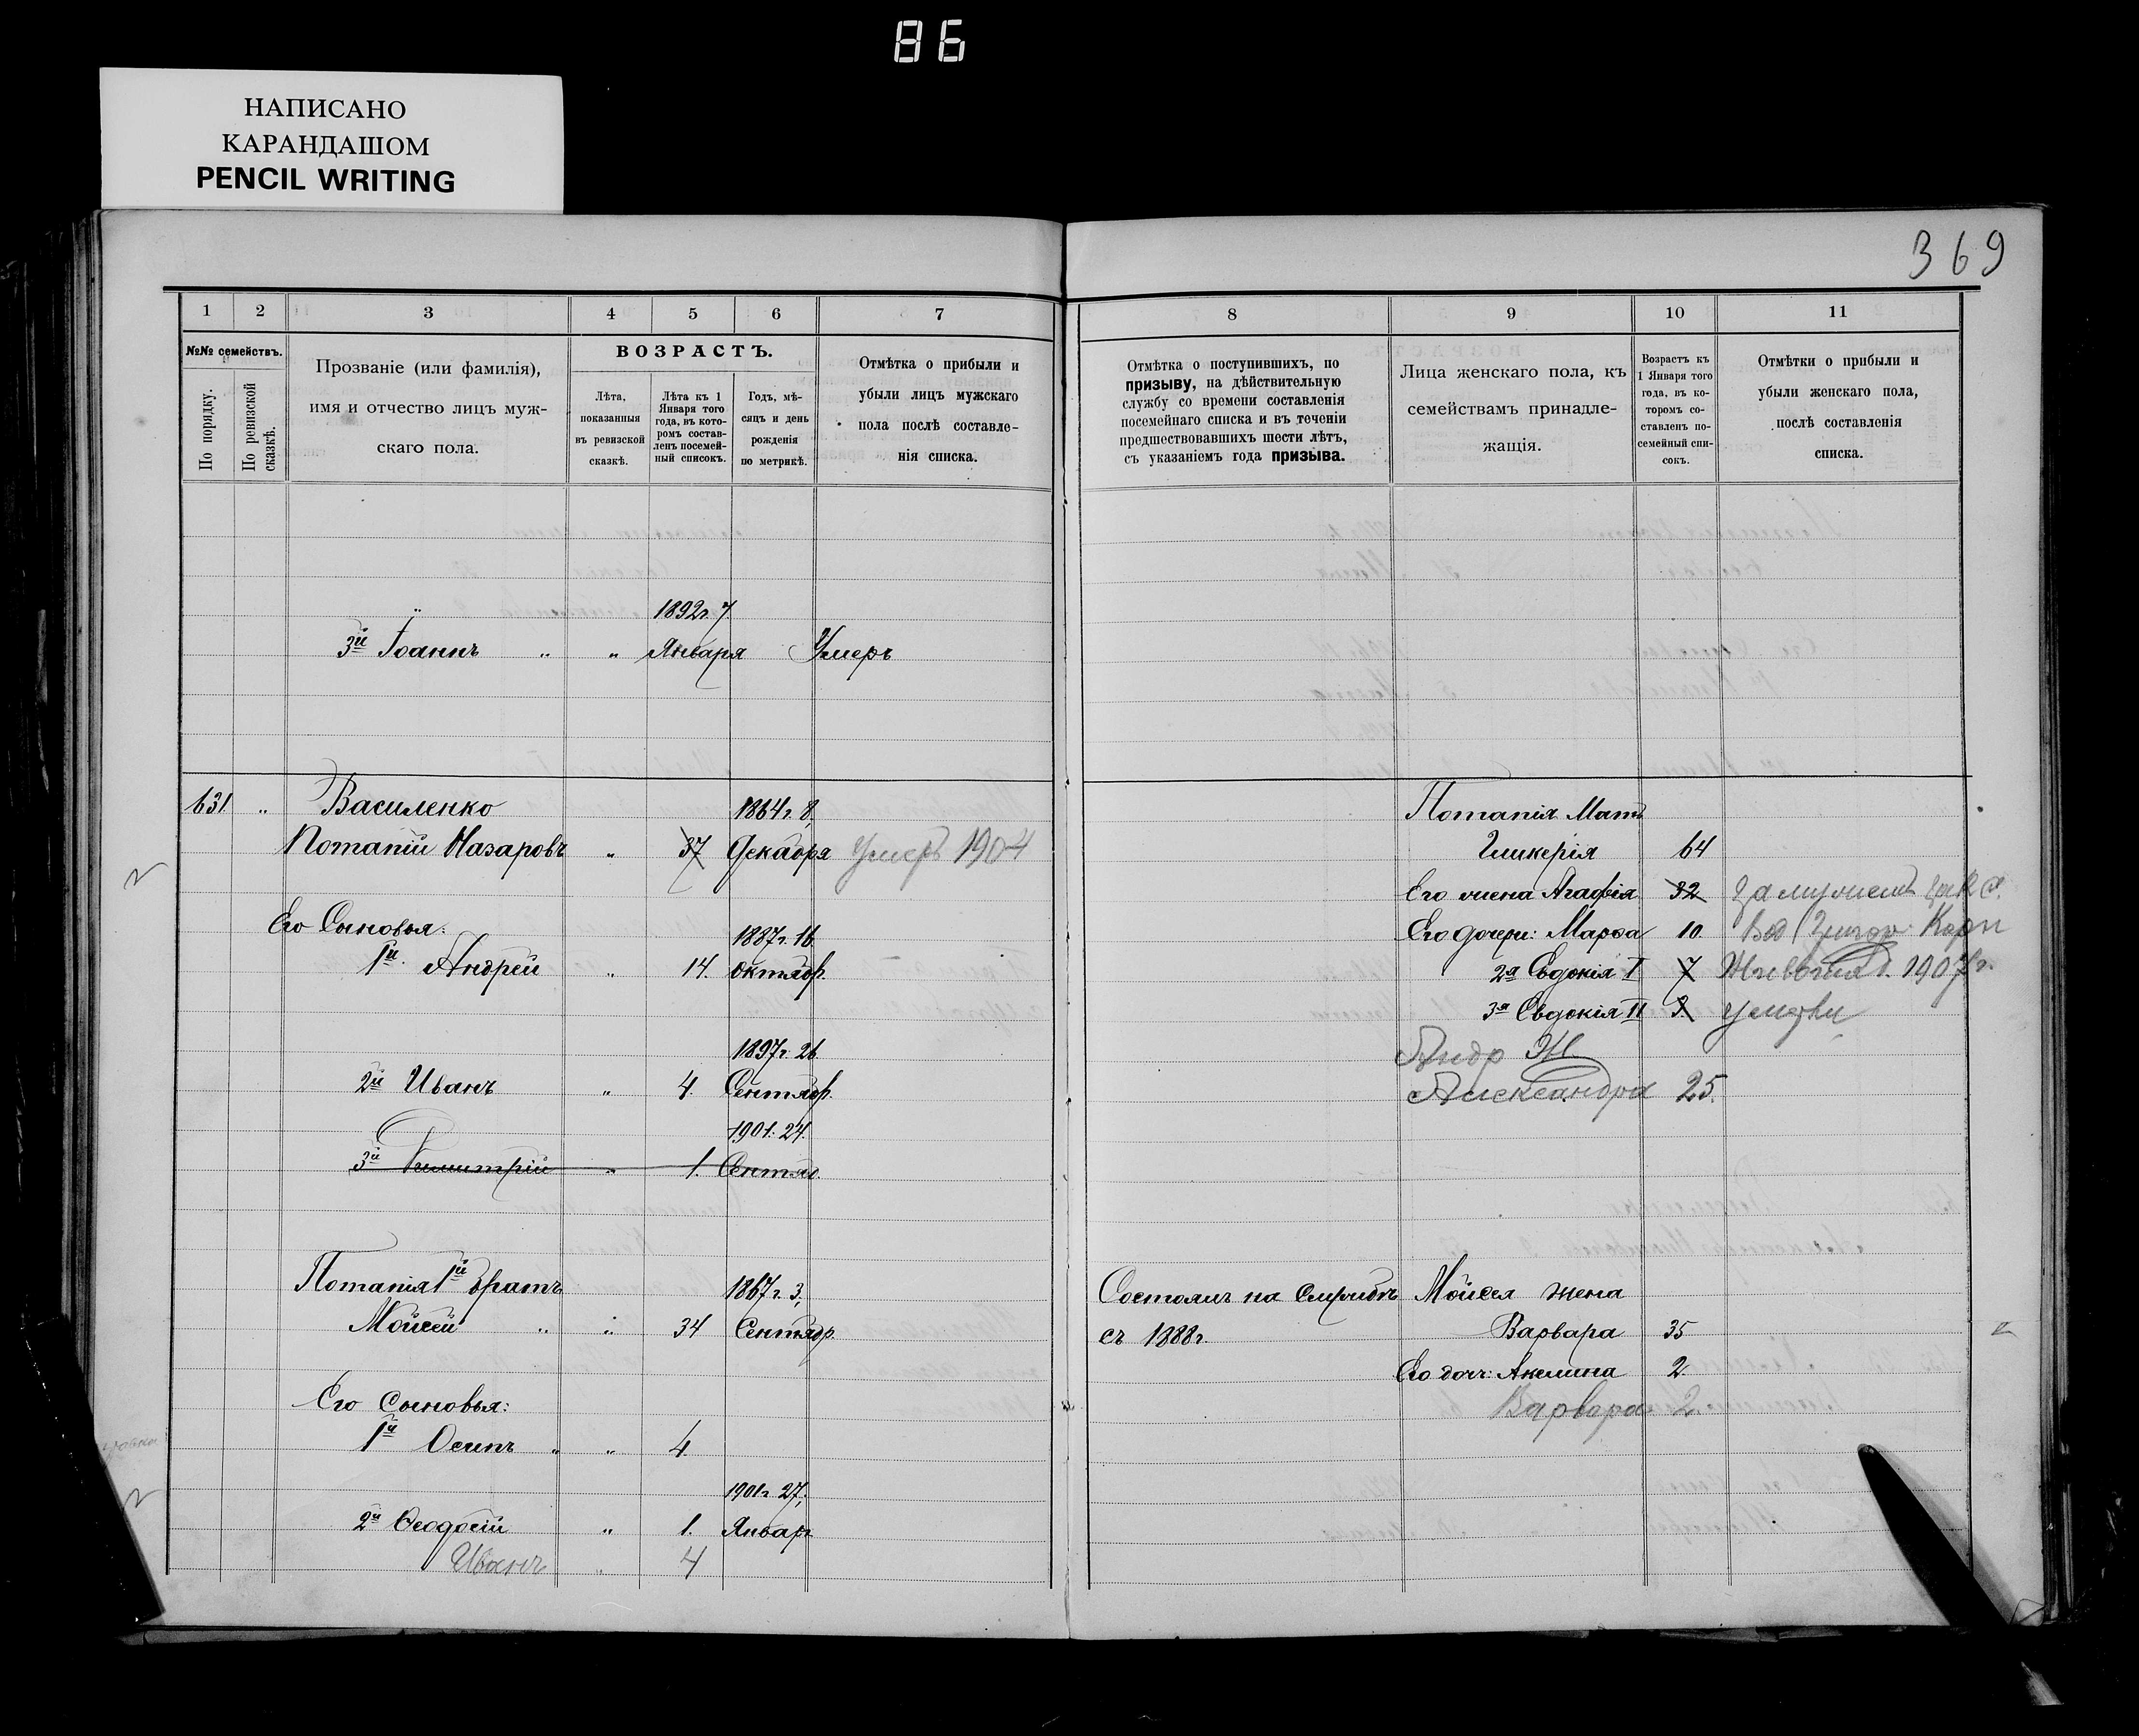 86
НАПИСАНО
КАРАНДАШОМ
PENCIL WRITING
369
1 2 3 4 5 6 7
№№ семействъ.
По порядку.
По ревизской сказкѣ.
Прозваніе (или фамилія),
имя и отчество лицъ муж-
скаго пола.
ВОЗРАСТЪ.
Лѣта,
показанныя
въ ревизской
сказкѣ.
Лѣта къ 1
Января того
года, въ кото-
ромъ состав-
ленъ посемей-
ный списокъ.
Годъ, мѣ-
сяцъ и день
рожденія
по метрикѣ.
Отмѣтка о прибыли и
убыли лицъ мужскаго
пола послѣ составле-
нія списка.
1892г. 7.
3й Іоаннъ " " Января Умеръ
631. " Василенко 1864г. 8.
Потапій Назаровъ " 37 Декабря Умеръ 1904
Его Сыновья: 1887г. 16
1й. Андрей " 14. Октябр.
1897г. 26
2й Иванъ " 4. Сентябр.
1901. 24.
3й Димитрій " 1. Сентяб.
Потапія 1й братъ 1867г. 3,
Мойсей " " 34 Сентябр.
Его Сыновья:
1й Осипъ " " 4.
1901г. 27.
2й Ѳеодосій " 1. Январ.
Иванъ " 4
8 9 10 11
Отмѣтка о поступившихъ, по
призыву, на дѣйствительную
службу со времени составленія
посемейнаго списка и въ теченіи
предшествовавшихъ шести лѣтъ,
съ указаніемъ года призыва.
Лица женскаго пола, къ
семействамъ принадле-
жащія.
Возрастъ къ
1 Января того
года, въ ко-
торомъ со-
ставленъ по-
семейный спи-
сокъ.
Отмѣтки о прибыли и
убыли женскаго пола,
послѣ составленія
списка.
Потапія Мать
Гликерія 64
Его жена Агафія 32 замужемъ
Его дочери: Марѳа 10. Григор. Карп
2я Евдокія I 7 1907г.
3я Евдокія II 3. умерли
Андр Ж
Александра 25.
Состоялъ на службѣ Мойсея жена
съ 1888г. Варвара 35
Его доч: Акелина 2.
Варвара 2.